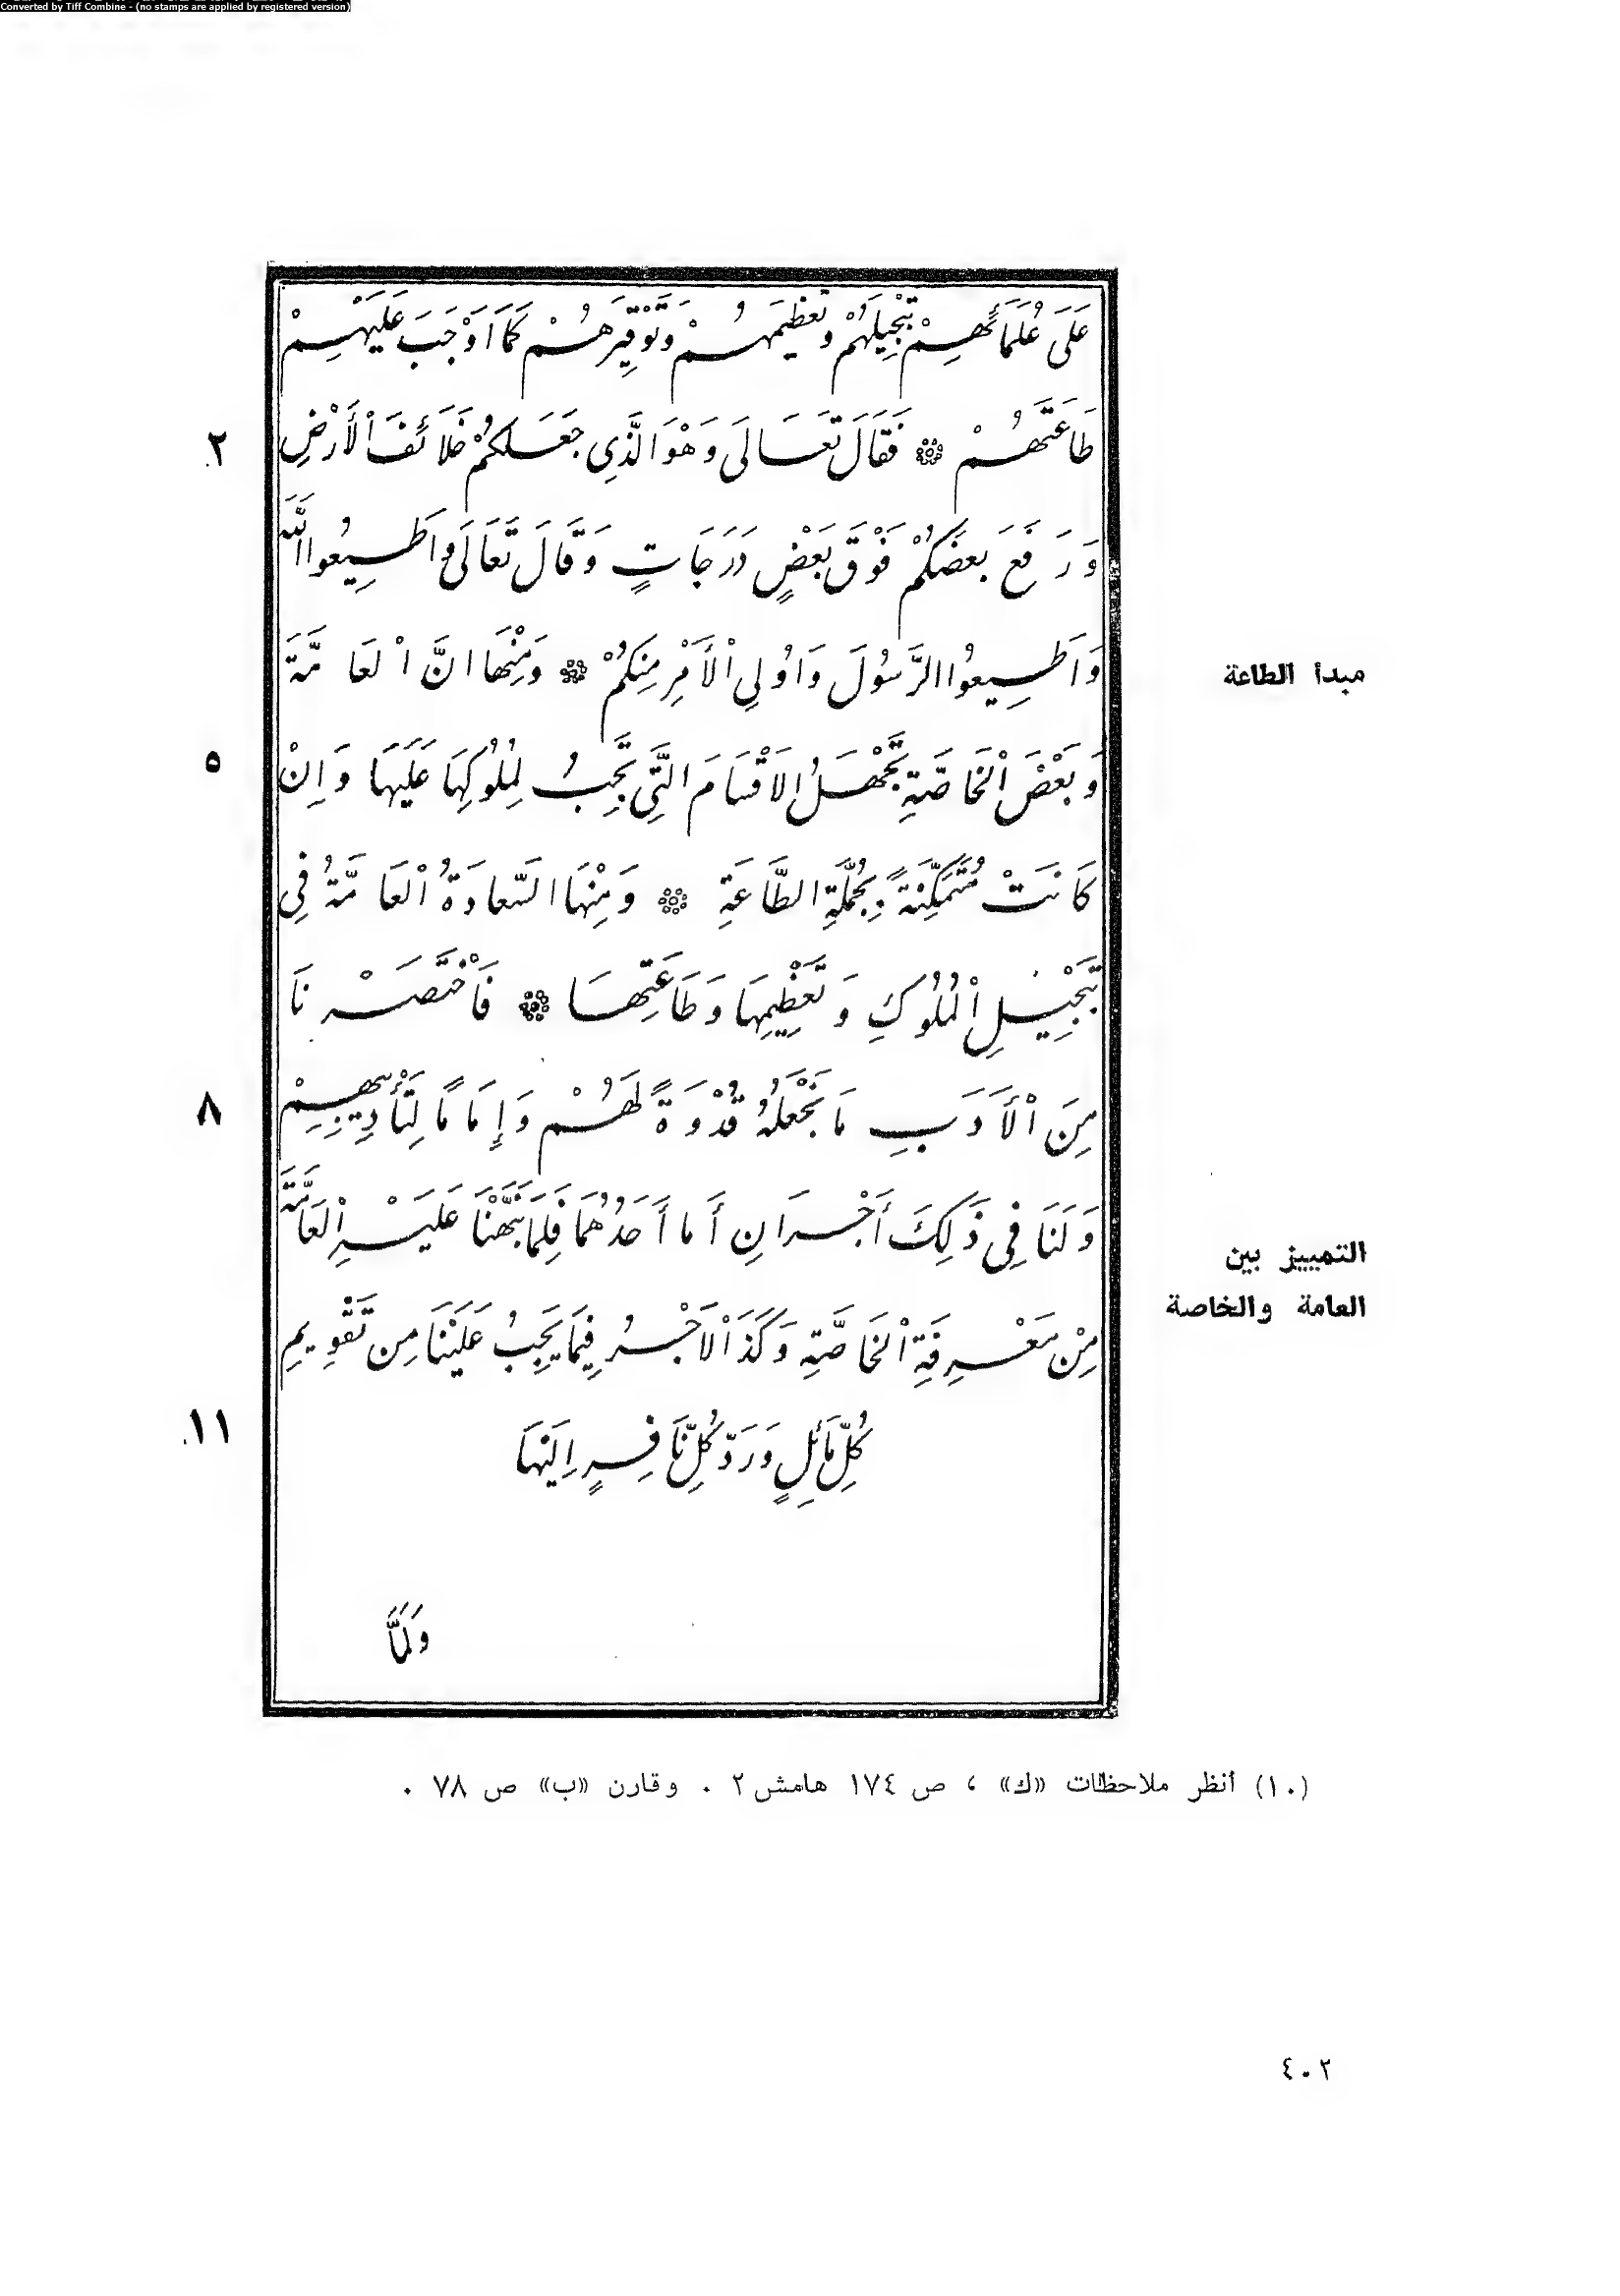 Converted by Tiff Combine - (no stamps are applied by registered version)
عَلَى عُلَمَائِهِمْ تَبْجِيلَهُمْ وَتَعْظِيمَهُمْ وَتَوْقِيرَهُمْ كَمَا اَوْجَبَ عَلَيْهِمْ
طَاعَتَهُمْ ۞ فَقَالَ تَعَالَى وَهْوَ الَّذِى جَعَلَكُمْ خَلَائِفَ اْلأَرْضِ
٢
وَرَفَعَ بَعضَكُمْ فَوْقَ بَعْضٍ دَرَجَاتٍ وَقَالَ تَعَالَى وَاَطِيعُوا اللَّهَ
وَاَطِيعُوا الرَّسُولَ وَاُولِى اْلأَمْرِ مِنكُمْ ۞ وَمِنْهَا انَّ اْلعَامَّةَ
مبدأ الطاعة
وَبَعْضَ اْلخَاصَّةِ تَجْهَلُ الاَقْسَامَ الَّتِى تَجِبُ لِمُلُوكِهَا عَلَيهَا وَاِنْ
٥
كَانَتْ مُتَمَكِّنَةً بِجُمْلَةِ الطَّاعَةِ ۞ وَمِنْهَا السَّعادَةُ اْلعَامَّةُ فِى
تَبْجِيْلِ اْلمُلُوكِ وَتَعْظِيمِهَا وَطَاعَتِهَا ۞ فَاْخْتَصَرْنَا
مِنَ اْلأَدَبِ مَا نَجْعَلُهُ قُدْوَةً لَهُمْ وَإِمَامًا لِتَأْدِيبِهِمْ
٨
وَلَنَا فِى ذَلِكَ أَجْرَانِ أَما أَحَدُهُمَا فَلِمَا نَبَّهْنَا عَلَيْهِ اْلعَامَّةَ
التمييز بين
العامة والخاصة
مِنْ مَعْرِفَةِ اْلخَاصَّةِ وَكَذَا اْلاَجْرُ فِيمَا يَجِبُ عَلَيْنَا مِن تَقْوِيمِ
كُلِّ مَائِلٍ وَرَدِّ كُلِّ نَافِرٍ اِلَيْهَا
١١
وَلَمَّا
(١٠) أنظر ملاحظات «ك» ، ص ١٧٤ هامش ٢ . وقارن «ب» ص ٧٨ .
٤٠٢